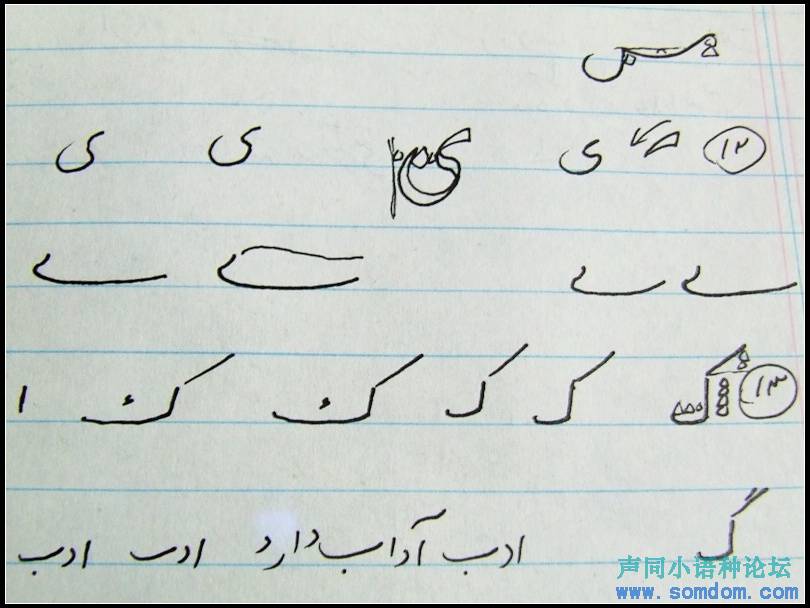 ۱۲ ی ی ی ی
ے ے ے ے
۱۳ ک ک ک ك ك ا
گ ادب آداب دارد ادب ادب
声同小语种论坛
www.somdom.com